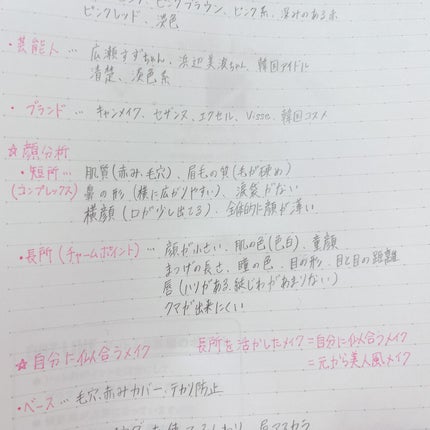 ピンクブラウン、ピンク系、深みのある赤
ピンクレッド、淡色
・芸能人 … 広瀬すずちゃん、浜辺美波ちゃん、韓国アイドルに
清楚、淡色系
・ブランド … キャンメイク、セザンヌ、エクセル、Visse、韓国コスメ
☆顔分析
・短所 … 肌質(赤み・毛穴)、眉毛の質(毛が硬め)
(コンプレックス) 鼻の形(横に広がりやすい)、涙袋がない
横顔(口が少し出てる)、全体的に顔が薄い
・長所(チャームポイント) … 顔が小さい、肌の色(色白)、童顔
まつげの長さ、瞳の色、目の形、目と目の距離
唇(ハリがある、縦じわがあまりない)
クマが出来にくい
☆自分に似合うメイク 長所を活かしたメイク=自分に似合うメイク
=元から美人風メイク
・ベース … 毛穴、赤みカバー、テカリ防止
眉マスカラ